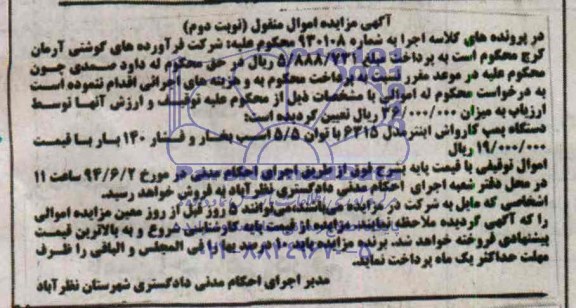 آگهی مزایده اموال منقول (نوبت دوم)
در پرونده های کلاسه اجرا به شماره ۹۳۰۱۰۸ محکوم علیه: شرکت فرآورده های گوشتی آرمان
کرج محکوم است به پرداخت مبلغ ۵/۸۸۸/۷۳۱ ریال در حق محکوم له داود صمدی چون
محکوم علیه در موعد مقرر نسبت به پرداخت محکوم به و هزینه های اجرائی اقدام ننموده است
به درخواست محکوم له اموالی با مشخصات ذیل از محکوم علیه توقیف و ارزش آنها توسط
ارزیاب به میزان ۳۶/۰۰۰/۰۰۰ ریال تعیین گردیده است:
دستگاه پمپ کارواش اینتر مدل ۶۳۱۵ با توان ۵/۵ اسب بخار و فشار ۱۴۰ بار با قیمت
۱۹/۰۰۰/۰۰۰ ریال
اموال توقیفی با قیمت پایه بشرح فوق از طریق اجرای احکام مدنی در مورخ ۹۴/۶/۲ ساعت ۱۱
در محل دفتر شعبه اجرای احکام مدنی دادگستری نظرآباد به فروش خواهد رسید.
اشخاصی که مایل به شرکت در مزایده می‌باشند می‌توانند ۵ روز قبل از روز معین مزایده اموالی
را که آگهی گردیده ملاحظه نمایند. مزایده از قیمت پایه کارشناسی شروع و به بالاترین قیمت
پیشنهادی فروخته خواهد شد. برنده مزایده باید ۱۰ درصد بها را فی المجلس و الباقی را ظرف
مهلت حداکثر یک ماه پرداخت نماید.
مدیر اجرای احکام مدنی دادگستری شهرستان نظرآباد